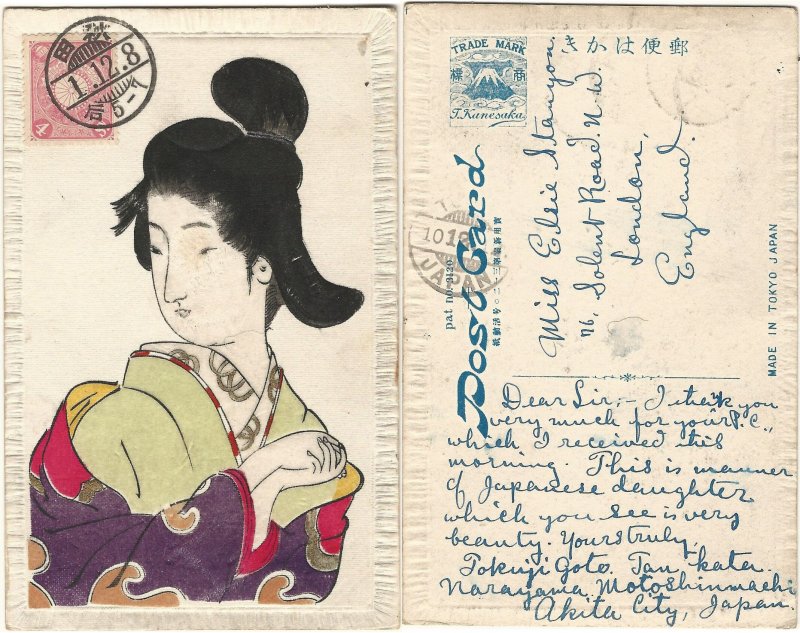 秋田
1.12.8
后5-7
4
TRADE MARK
商標
T. Kanesaka.
郵便はかき
Post Card
pat no. 3120
JAPAN
MADE IN TOKYO JAPAN
Miss Elsie Stanyon.
76, Solent Road. N.W.
London,
England.
Dear Sir,- I thank you
very much for your P.C.,
which I received this
morning. This is manner
of Japanese daughter
which you see is very
beauty. Yours truly,
Tokuji Goto. Tan, kata.
Narayama, Motoshinmachi
Akita City, Japan.